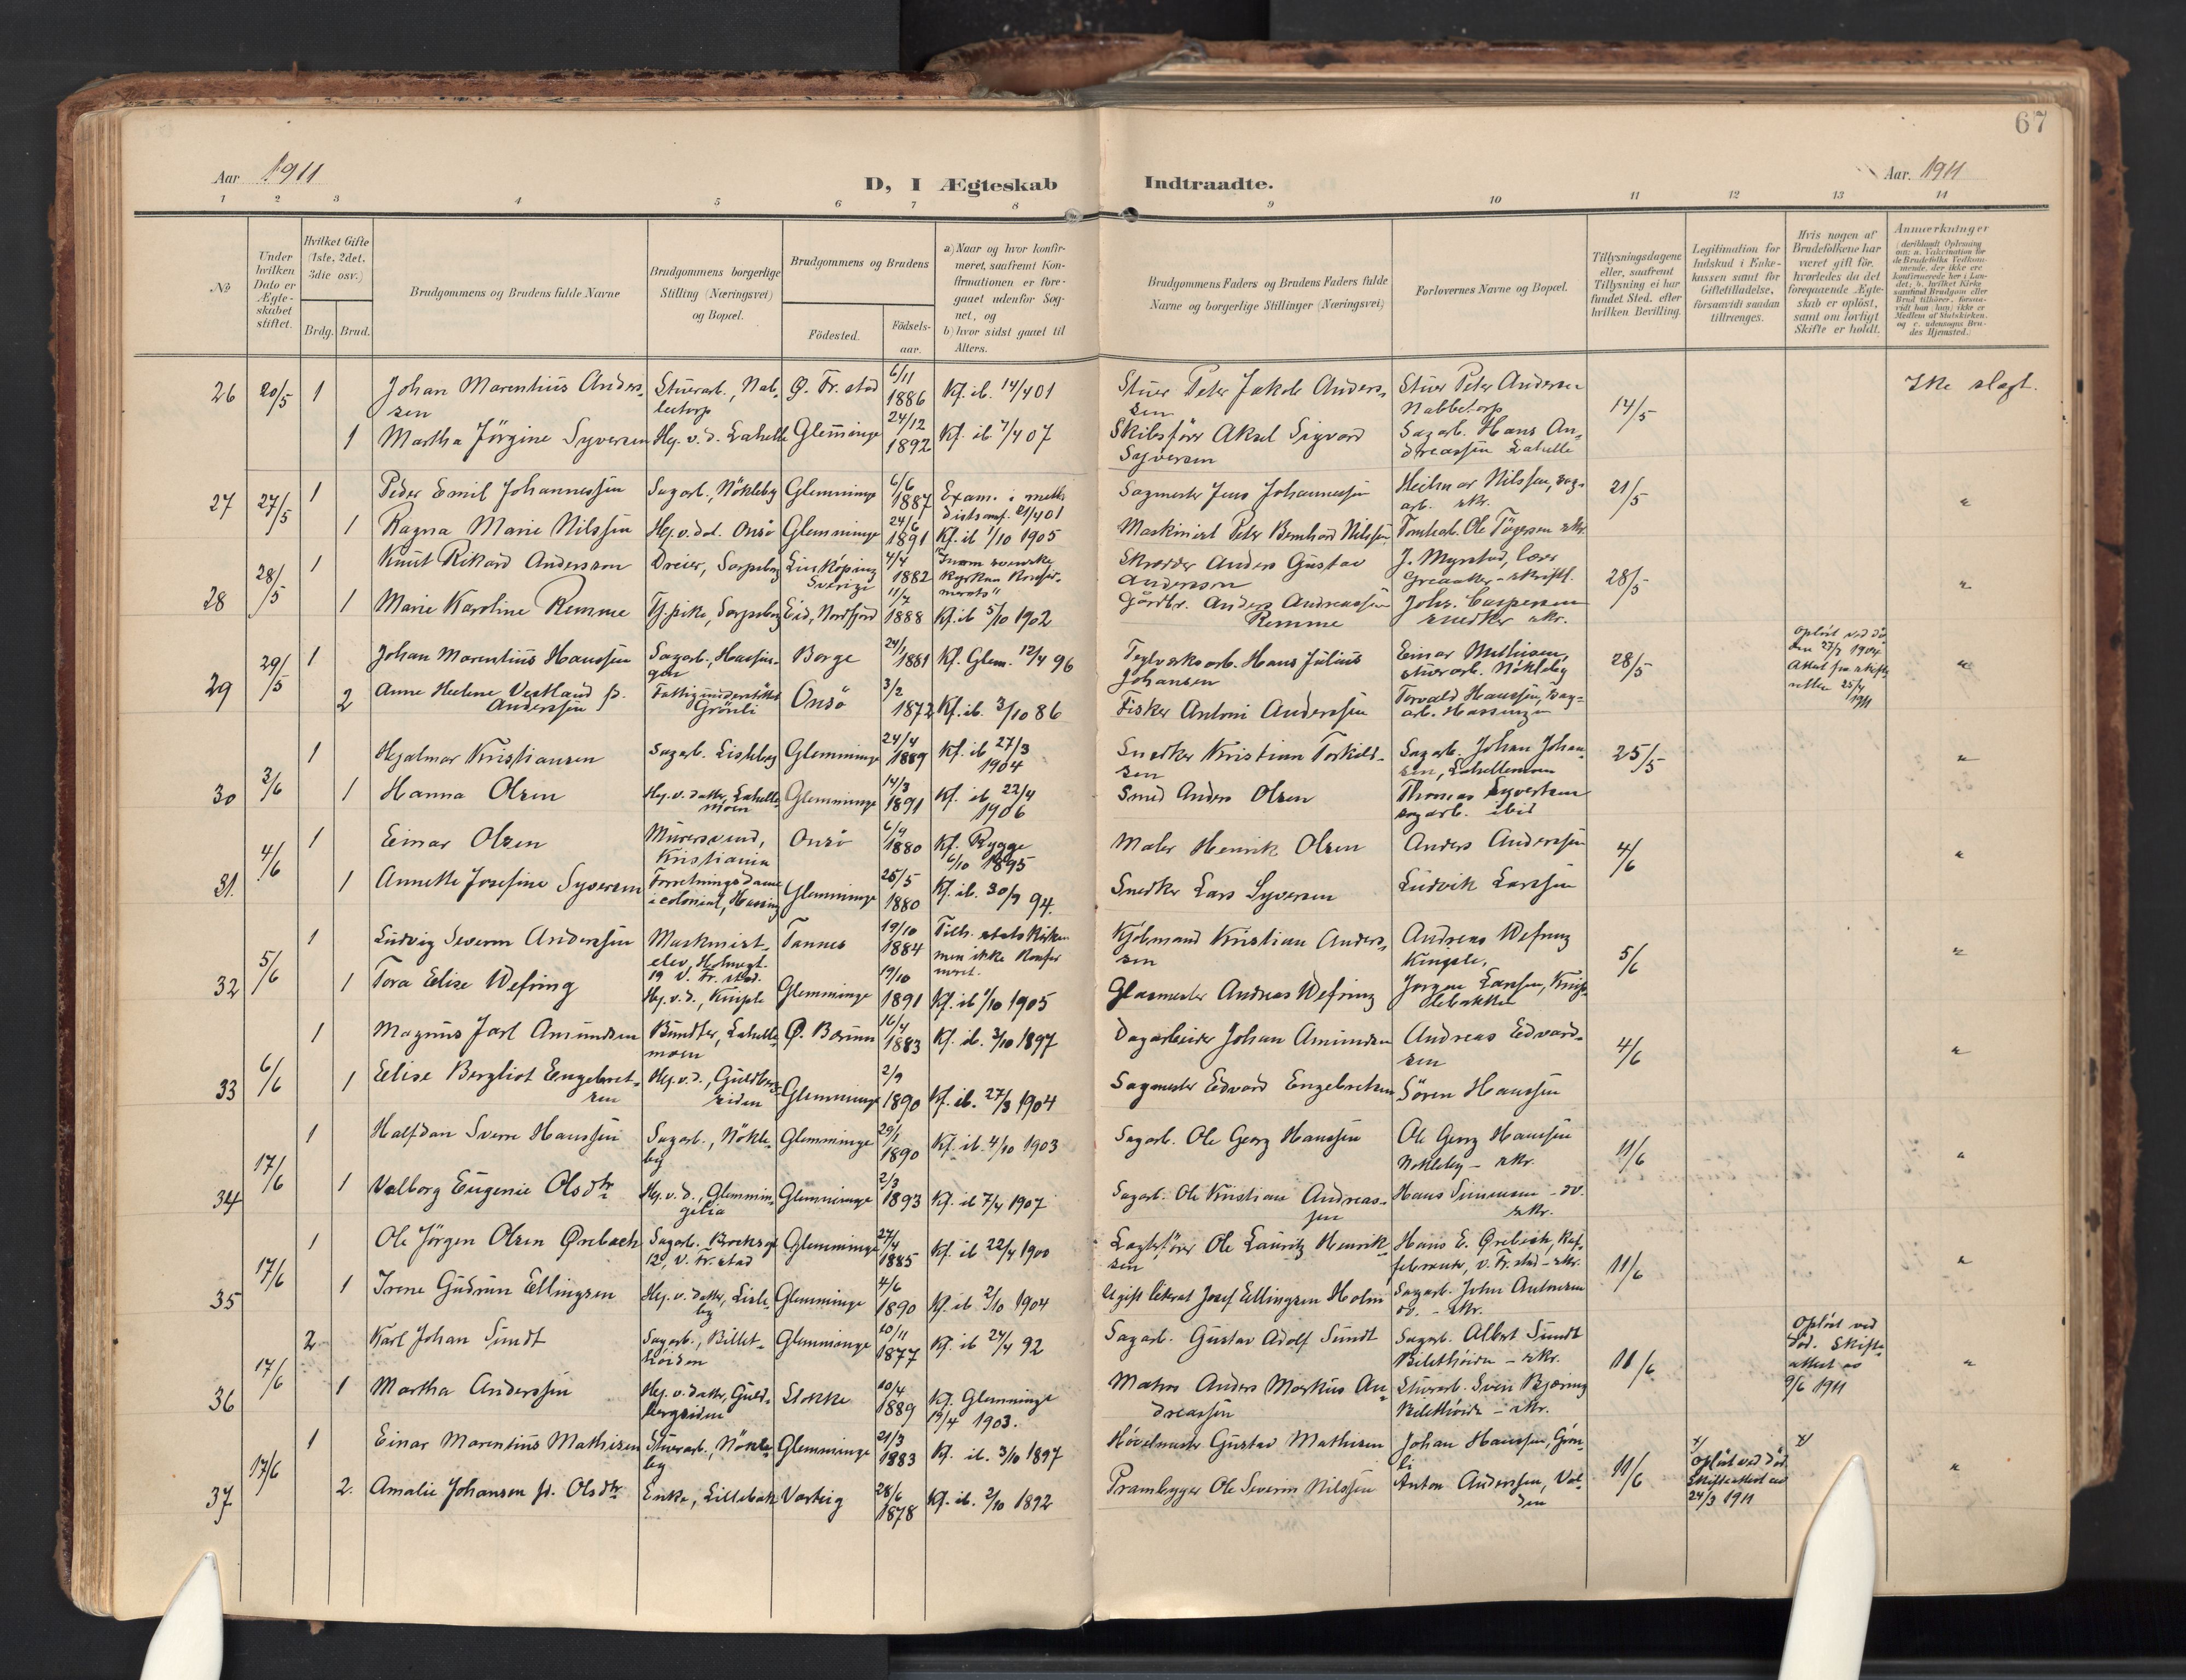 67
Aar 1911
D, I Ægteskab Indtraadte.
Aar. 1911
1 2 3 4 5 6 7 8 9 10 11 12 13 14
No
Under hvilken Dato er Ægteskabet stiftet.
Hvilket Gifte (1ste, 2det, 3die osv.)
Brdg. Brud.
Brudgommens og Brudens fulde Navne
Brudgommens borgerlige Stilling (Næringsvei) og Bopæl.
Brudgommens og Brudens
Födested.
Födsels-aar.
a) Naar og hvor konfirmeret, saafremt Konfirmationen er foregaaet udenfor Sognet, og
b) hvor sidst gaaet til Alters.
Brudgommens Faders og Brudens Faders fulde Navne og borgerlige Stillinger (Næringsvei)
Forlovernes Navne og Bopæl.
Tillysningsdagene eller, saafremt Tillysning ei har fundet Sted, efter hvilken Bevilling.
Legitimation for Indskud i Enkekassen samt for Giftetilladelse, forsaavidt saadan tiltrænges.
Hvis nogen af Brudefolkene har været gift för, hvorledes da det foregaaende Ægteskab er oplöst, samt om lovligt Skifte er holdt.
Anmærkninger
26 20/5 1 Johan Marentius Anderssen Stuerarb., Nabbetorp Ø. Fr. stad 6/11 1886 Kf. ib. 14/4 01 Stuer Peter Jakob Anderssen Stuer Peter Andersen Nabbetorp 14/5 Ikke slægt.
1 Martha Jörgine Syversen Hj. v. d. Lahelle Glemminge 24/12 1892 Kf. ib 7/4 07 Skibsförer Aksel Sigvard Syversen Sagarb. Hans Andreassen Lahelle
27 27/5 1 Peder Emil Johannessen Sagarb., Nökleby Glemminge 6/6 1887 Exam. i 21/4 01 Sagmester Jens Johannessen Nilssen, sagarb. skr. 21/5 "
1 Ragna Marie Nilssen Hj. v. dat. Onsö Glemminge 24/6 1891 Kf. ib 1/10 1905 Maskinist Peter Bernhard Nilssen Tomtearb. Ole skr.
28 28/5 1 Knut Rikard Andersson Dreier, Sarpsborg Linköping Sverige 4/4 1882 Inom svenske Kyrkan Konfirmerats" Skrædder Anders Gustav Anderson J. Myrstad, Lærer Greaaker - skriftl. 28/5 "
1 Marie Karoline Remme Tj.pike, Sarpsborg Eid, Nordfjord 11/7 1888 Kf. ib 5/10 1902 Gårdbr. Anders Andreassen Remme Johs. Caspersen snedker skr.
29 29/5 1 Johan Marentius Hanssen Sagarb., Hassingen Borge 24/1 1881 Kf. Glem. 12/4 96 Teglverksarb. Hans Julius Johansen Einar Mathisen, stuerarb. Nökleby 28/5 Oplöst ved döden 27/7 1904 Attest fra skifteretten 25/4 1911 "
2 Anne Helene Vestland f. Anderssen Fattigunderstöttet Grönli Onsö 3/2 1872 Kf. ib. 3/10 86 Fisker Antoni Anderssen Torvald Hanssen, sagarb. Hassingen
30 3/6 1 Hjalmar Kristiansen Sagarb. Lisleby Glemminge 24/4 1889 Kf. ib 27/3 1904 Snedker Kristian Torkildsen Sagarb. Johan Johansen, Lahellemoen 25/5 "
1 Hanna Olsen Hj. v. datter, Lahellemoen Glemminge 14/3 1891 Kf. ib 22/4 1906 Smed Anders Olsen Thomas Syvertsen sagarb. ibid
31. 4/6 1 Einar Olsen Murersvend, Kristiania Onsö 6/4 1880 Kf. Rygge 6/10 1895 Maler Henrik Olsen Anders Anderssen 4/6 "
1 Annette Josefine Syversen Forretningsdame i colonial, Hassing Glemminge 25/5 1880 Kf. ib. 30/9 94. Snedker Lars Syversen Ludvik Larssen
32 5/6 1 Ludvig Severin Anderssen Maskinistelev, Holmegt. 19 V. Fr. stad. Tannes 19/10 1884 Tilh. statskirken men ikke Konfirmeret. Kjölmand Kristian Anderssen Andreas Wefring Kniple. 5/6 "
1 Tora Elise Wefring Hj. v. d., Kniple Glemminge 19/10 1891 Kf. ib 1/10 1905 Glasmester Andreas Wefring Jörgen Larssen, Kniplebakken
33 6/6 1 Magnus Jarl Amundsen Bundter, Lahellemoen Ø. Bærum 16/4 1883 Kf. ib. 3/10 1897 Dagarbeider Johan Amundsen Andreas Edvardsen 4/6 "
1 Elise Bergliot Engebretsen Hj. v. d., Guldbergsiden Glemminge 2/9 1890 Kf. ib. 27/3 1904 Sagmester Edvard Engebretsen Sören Hanssen
34 17/6 1 Halfdan Sverre Hanssen Sagarb., Nökleby Glemminge 29/1 1890 Kf. ib. 4/10 1903 Sagarb. Ole Georg Hanssen Ole Georg Hanssen Nökleby - skr. 11/6 "
1 Valborg Eugenie Olsdtr Hj. v. d., Glemmingelia Glemminge 2/3 1893 Kf. ib 7/4 1907 Sagarb. Ole Kristian Andreassen Hans Simensen - sv. skr.
35 17/6 1 Ole Jörgen Olsen Ørebæch Sagarb. Brochsgt 12, V. Fr. stad Glemminge 27/4 1885 Kf. ib 22/4 1900 Lagtefører Ole Lauritz Henriksen Hans E. Ørebech, v. Fr. stad - skr. 11/6 "
1 Irene Gudrun Ellingsen Hj. v. datter, Lisleby Glemminge 4/6 1890 Kf. ib. 2/10 1904 Ugift literat Josef Ellingsen Holm Sagarb. John Antonsen sv. - skr.
36 17/6 2 Karl Johan Sundt Sagarb., Billethöiden Glemminge 20/11 1877 Kf. ib 24/4 92 Sagarb. Gustav Adolf Sundt Sagarb. Albert Sundt Billethöiden - skr. 11/6 Oplöst ved död. Skifteattest av 9/6 1911 "
1 Martha Anderssen Hj. v. datter, Guldbergsiden Stokke 20/4 1889 Kf. Glemminge 19/4 1903. Matros Anders Markus Andreassen Stuerarb. Sven Bjæring Billethöiden - skr.
37 17/6 1 Einar Marentius Mathisen Stuerarb., Nökleby Glemminge 21/3 1883 Kf. ib. 3/10 1897 Hövelmester Gustav Mathisen Johan Hanssen, Grönli 11/6 x/ Oplöst ved död. Skifteattest av 24/3 1911 x/ "
2. Amalie Johansen f. Olsdtr Enke, Lillebæk Varteig 28/6 1878 Kf. ib. 2/10 1892 Prambygger Ole Severin Nilssen Anton Anderssen, Valden